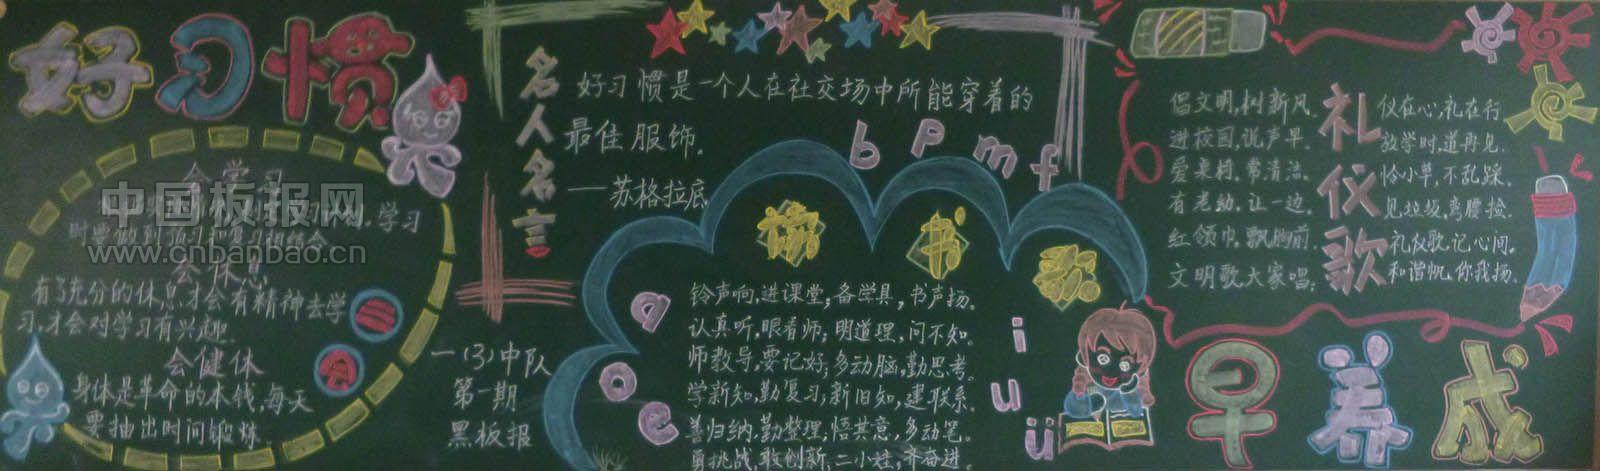 好习惯
会学习
学习
时要做到预习复习相结合
会休息
有了充分的休息,才会有精神去学
习,才会对学习有兴趣.
会健体
身体是革命的本钱,每天
要抽出时间锻炼.
中国板报网
www.cnbanbao.cn
一(3)中队
第一期
黑板报
名人名言
好习惯是一个人在社交场中所能穿着的
最佳服饰.
——苏格拉底
b p m f
a
o
e
i
u
ü
读书歌
铃声响,进课堂;备学具,书声扬.
认真听,眼看师;明道理,问不知.
师教导,要记好;多动脑,勤思考.
学新知,勤复习;新旧知,建联系.
善归纳,勤整理;悟其意,多动笔.
勇挑战,敢创新,二小娃,齐奋进.
礼仪歌
倡文明,树新风.
进校园,说声早.
爱桌椅,常清洁.
有老幼,让一边.
红领巾,飘胸前.
文明歌大家唱;
仪在心,礼在行
放学时,道再见.
怜小草,不乱踩.
见垃圾,弯腰捡.
礼仪歌,记心间.
和谐帆,你我扬.
早养成